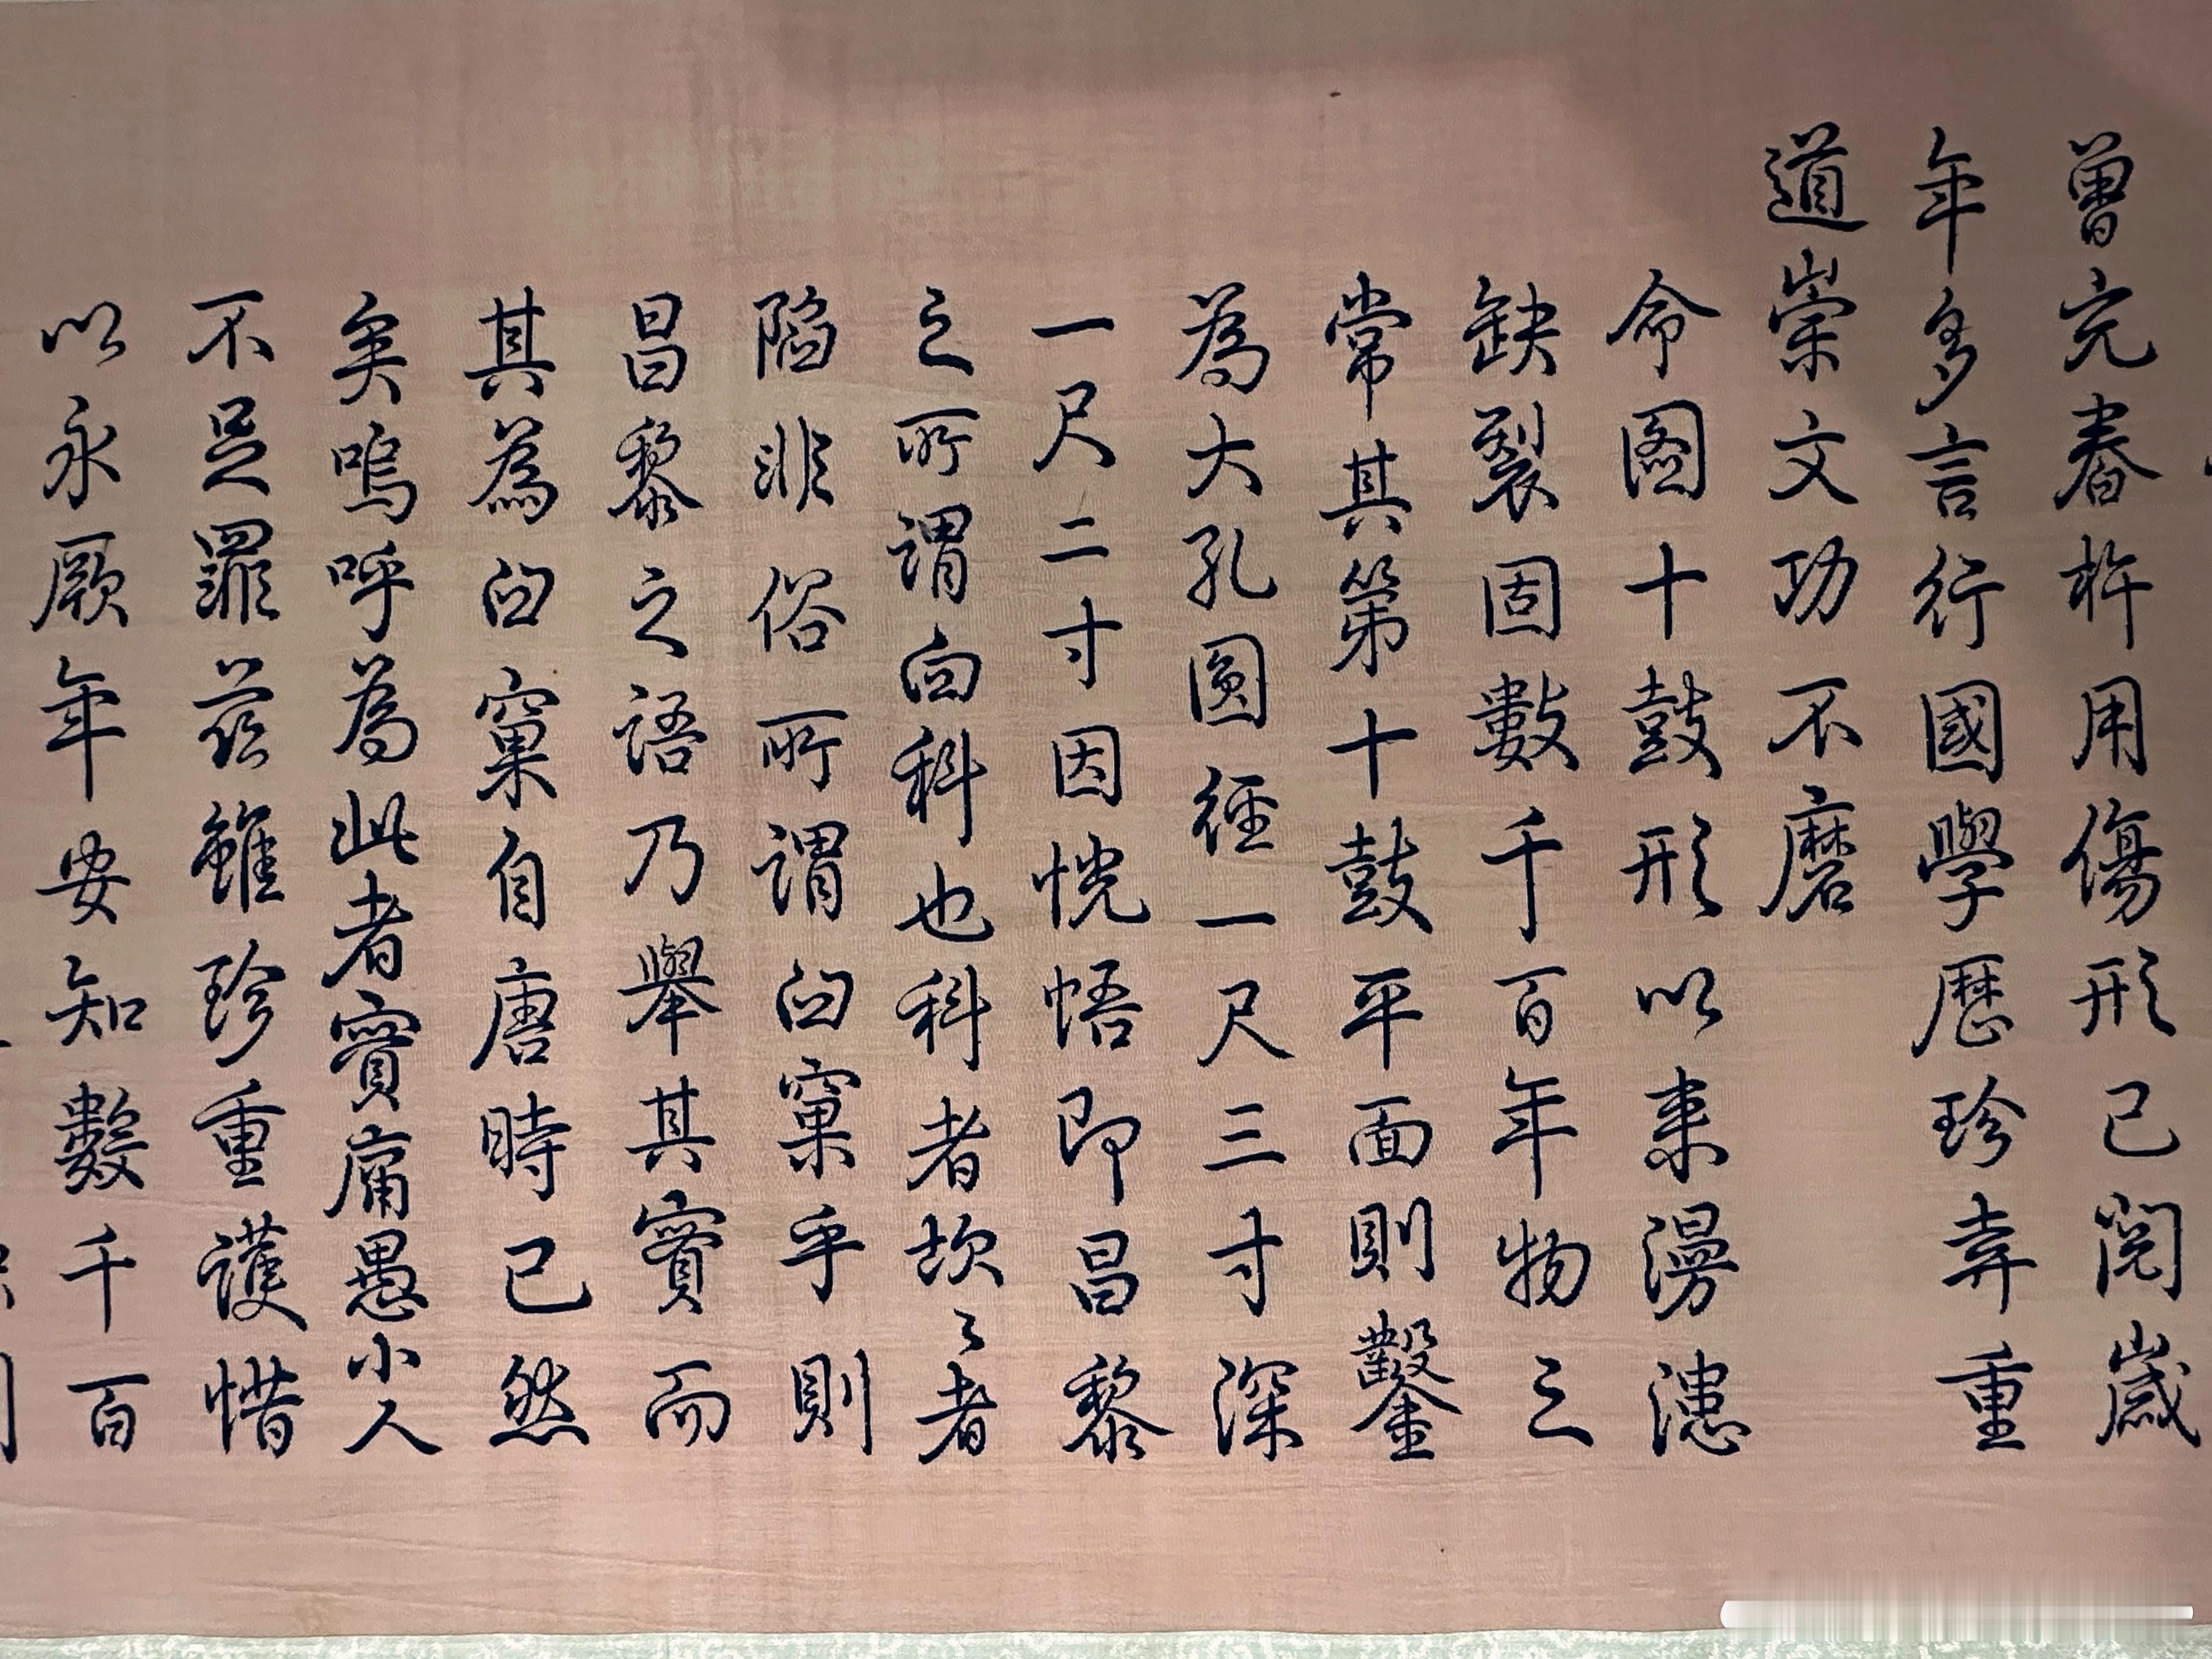 曾充舂杵用傷形已閱歲
年多言行國學歷珍弆重
道崇文功不磨
命圖十鼓形以来漫漶
缺裂固數千百年物之
常其第十鼓平面則鑿
為大孔圓徑一尺三寸深
一尺二寸因恍悟即昌黎
之所謂臼科也科者坎〻者
陷非俗所謂臼窠乎則
昌黎之語乃舉其實而
其為臼窠自唐時已然
矣嗚呼為此者實庸愚小人
不足罪茲雖珍重護惜
以永厥年安知數千百